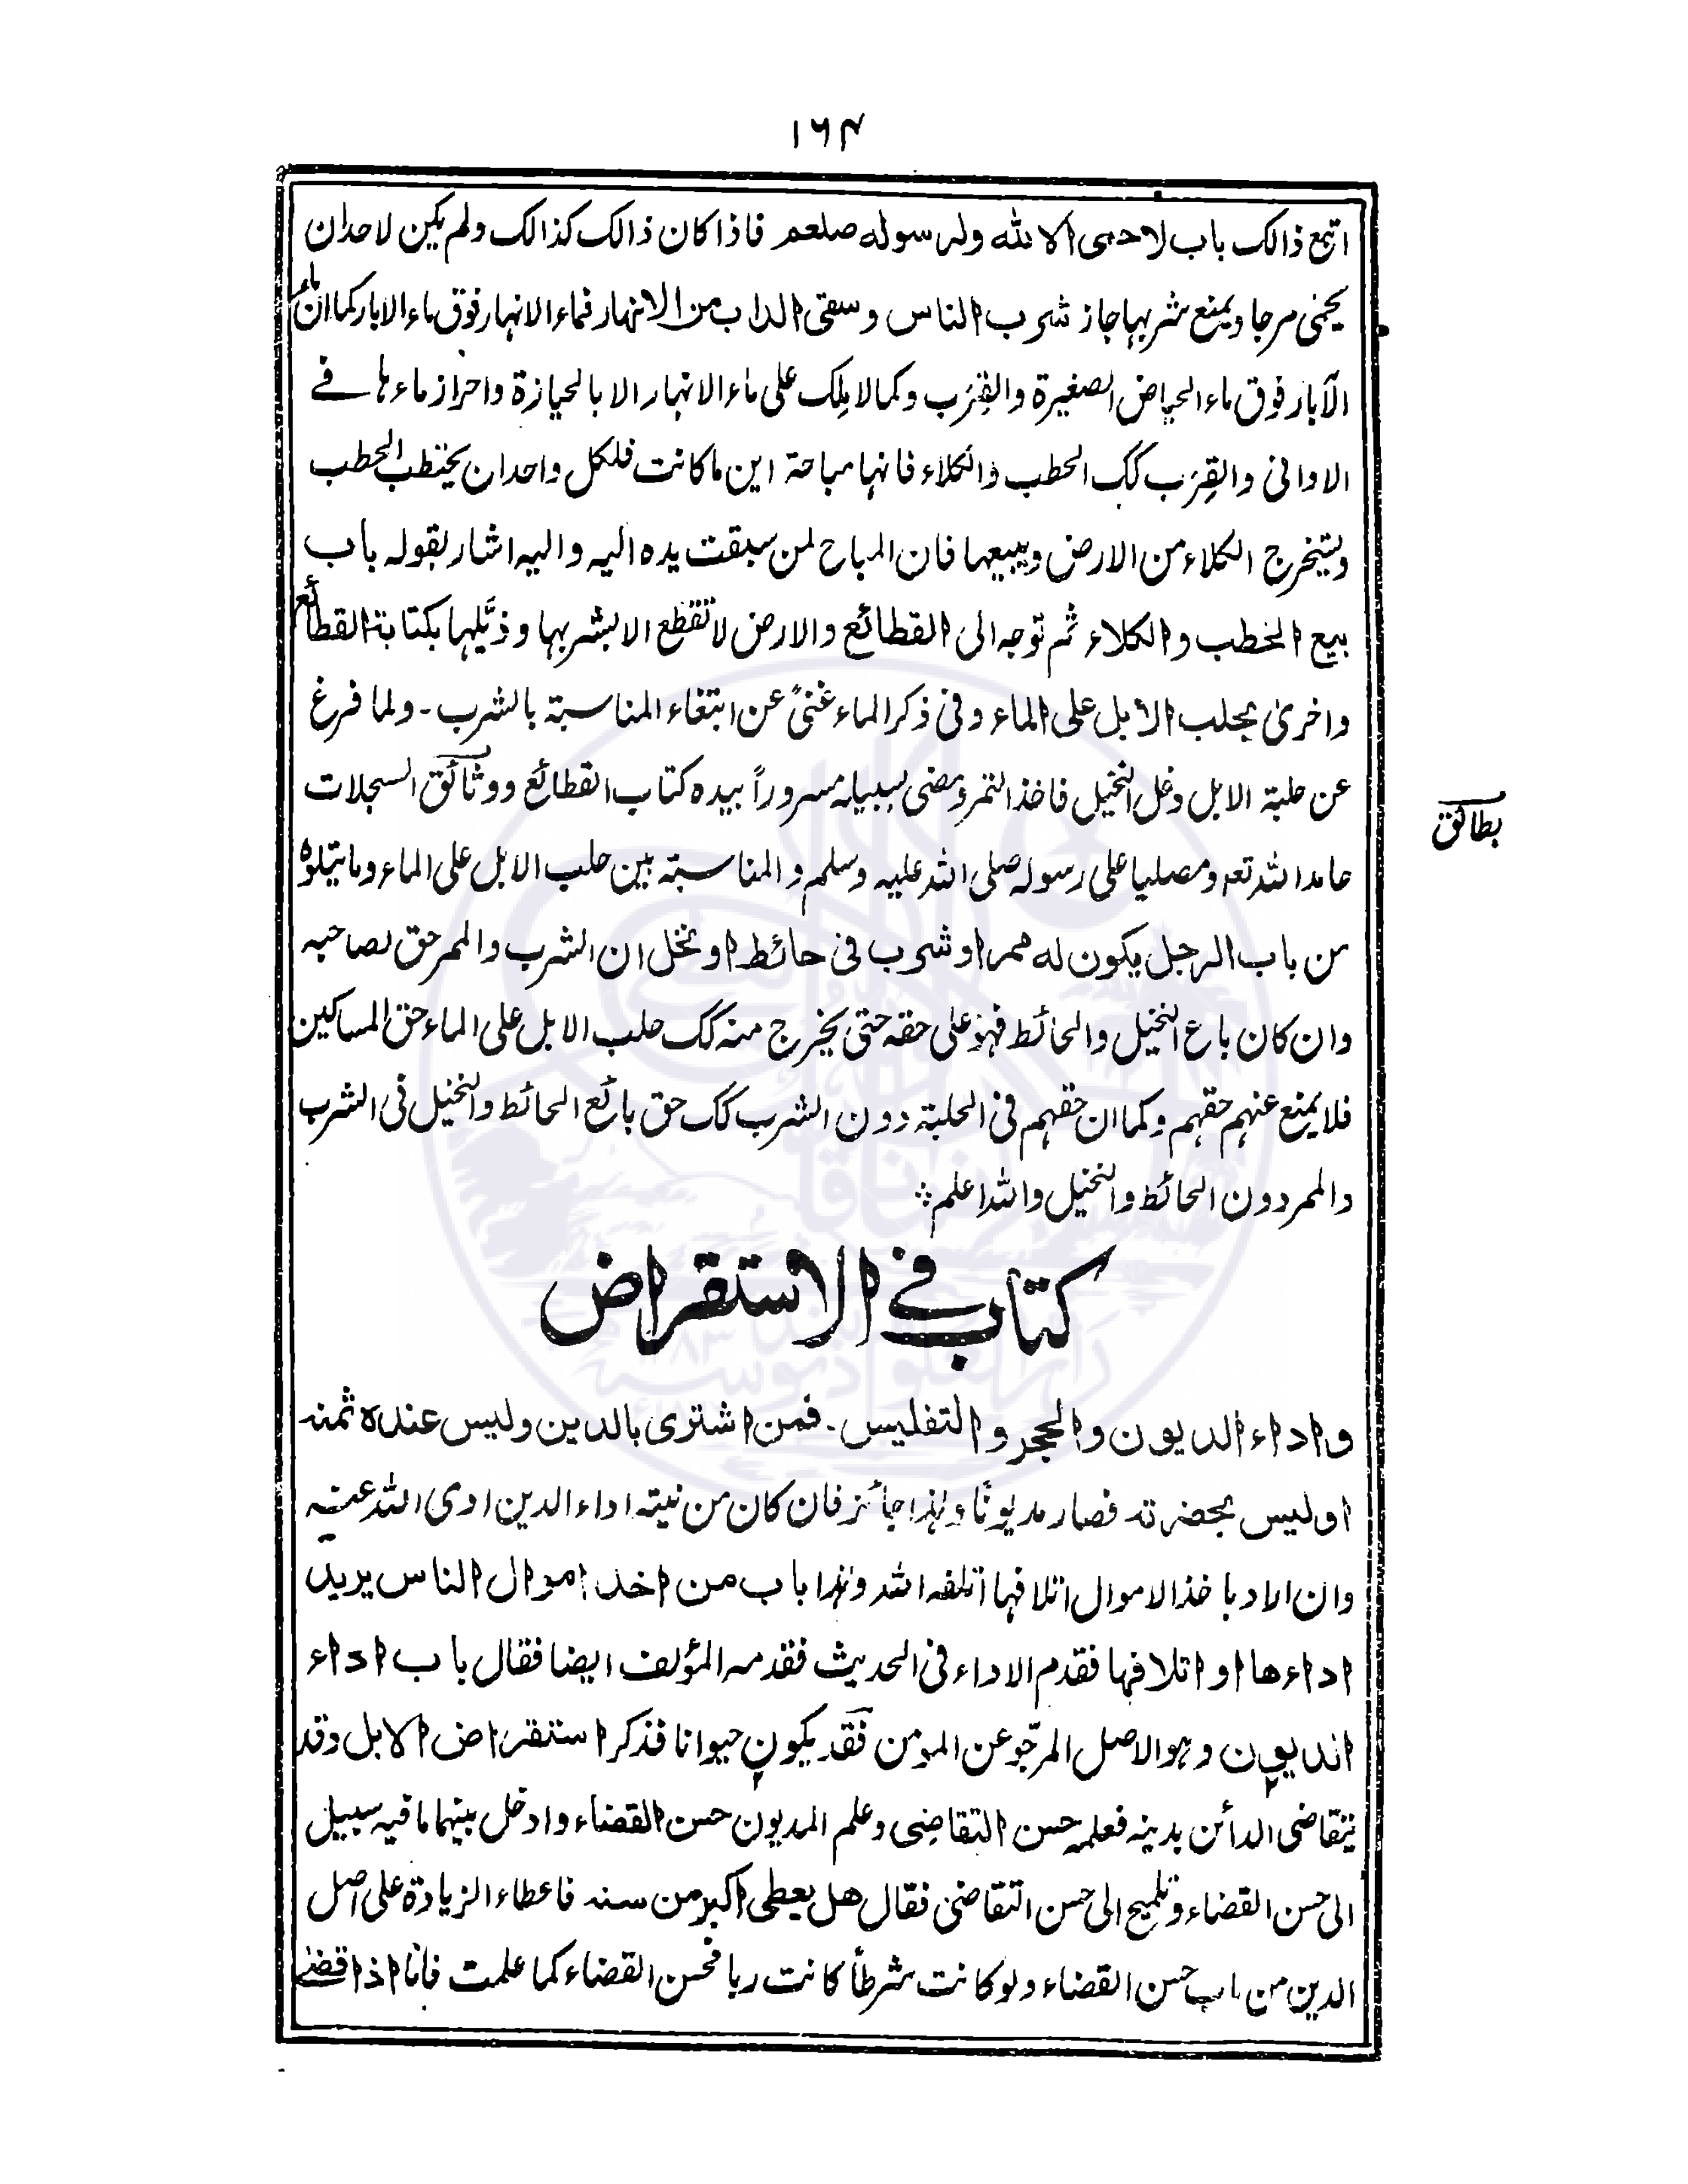 ١٦٤
اتبع ذالک باب لا حمى الا لله ولرسوله صلعم فاذا کان ذالک کذالک ولم یکن لاحد ان
یحمی مرجا ویمنع شربها جاز شرب الناس وسقی الداب من الانهار فماء الانهار فوق ماء الابار کما ان ماء
الآبار فوق ماء الحیاض الصغیرة والقِرَب وکما لا ملک علی ماء الانهار الا بالحیازة واحراز ماءها فے
الاوانی والقِرَب کک الحطب والکلاء فانها مباحة این ما کانت فلکل واحد ان یحتطب الحطب
ویستخرج الکلاء من الارض ویبیعها فان المباح لمن سبقت یده الیه والیه اشار بقوله باب
بیع الحطب والکلاء ثم توجه الی القطائع والارض لا تقطع الا بشربها وذیّلها بکتابة القطائع
واخریٰ بحلب الابل علی الماء وفی ذکر الماء غنیً عن ابتغاء المناسبة بالشرب۔ ولما فرغ
عن حلبة الابل دخل النخیل فاخذ التمر ومضی لسبیله مسروراً بیده کتاب القطائع ووثائق السجلات
بطائق
حامدا لله تعه ومصلیا علی رسوله صلی الله علیه وسلم والمناسبة بین حلب الابل علی الماء وما یتلوه
من باب الرجل یکون له ممر او شرب فی حائط او نخل ان الشرب والممر حق لصاحبه
وان کان باع النخیل والحائط فهو علی حقه حتی یخرج منه کک حلب الابل علی الماء حق المساکین
فلا یمنع عنهم حقهم وکما ان حقهم فی الحلبة دون الشرب کک حق بائع الحائط والنخیل فی الشرب
والممر دون الحائط والنخیل والله اعلم
کتاب فے الاستقراض
واداء الدیون والحجر والتفلیس۔ فمن اشتری بالدین ولیس عنده ثمنه
او لیس بحضرته فصار مدیونًا وهذا جائز فان کان من نیته اداء الدین ادی الله عنه
وان اراد باخذ الاموال اتلافها اتلفه الله وهذا باب من اخذ اموال الناس یرید
اداءها او اتلافها فقدم الاداء فی الحدیث فقدمه المؤلف ایضا فقال باب اداء
الدیون وهو الاصل المرجّو عن المومن فقد یکون حیوانا فذکر استقراض الابل وقد
یتقاضی الدائن بدینه فعلمه حسن التقاضی وعلم المدیون حسن القضاء وادخل بینهما ما فیه سبیل
الی حسن القضاء وتلمیح الی حسن التقاضی فقال هل یعطی اکبر من سنه فاعطاء الزیادة علی اصل
الدین من باب حسن القضاء ولو کانت شرطاً کانت ربا فحسن القضاء کما علمت فاما اذا قضے